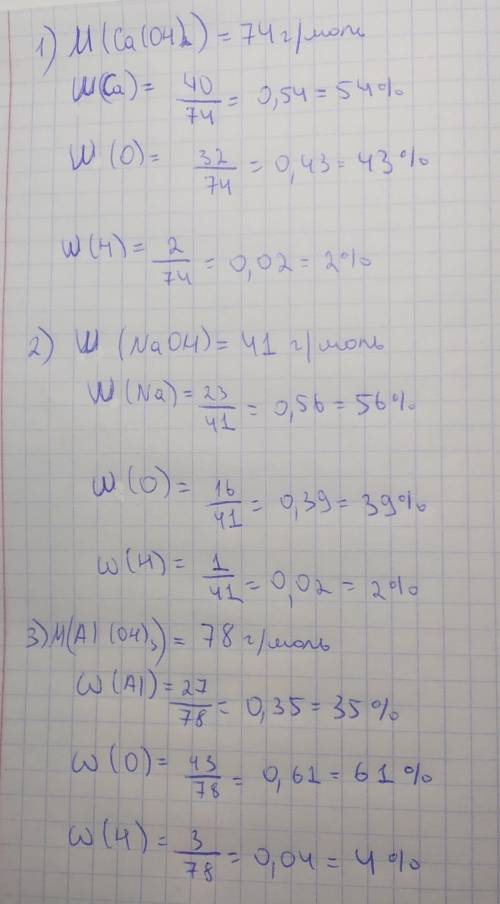 1) M(Ca(OH)₂) = 74 г/моль
W(Ca) = 40/74 = 0,54 = 54%
W(O) = 32/74 = 0,43 = 43%
W(H) = 2/74 = 0,02 = 2%
2) W (NaOH) = 41 г/моль
W(Na) = 23/41 = 0,56 = 56%
W(O) = 16/41 = 0,39 = 39%
W(H) = 1/41 = 0,02 = 2%
3) M(Al(OH)₃) = 78 г/моль
W(Al) = 27/78 = 0,35 = 35%
W(O) = 43/78 = 0,61 = 61%
W(H) = 3/78 = 0,04 = 4%